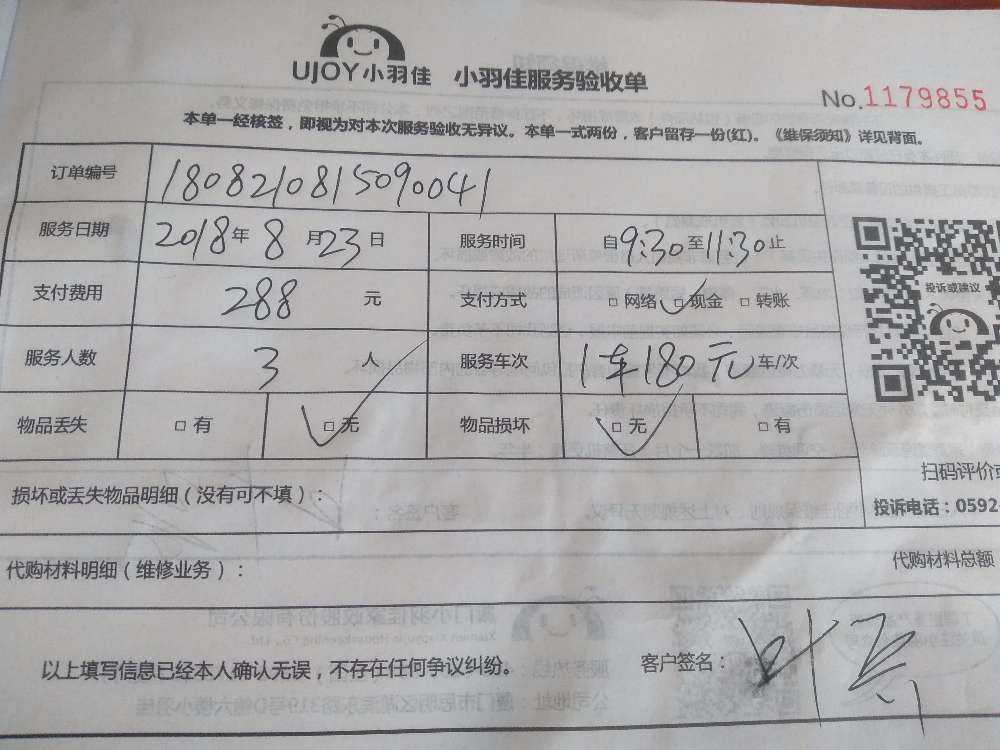 UJOY小羽佳 小羽佳服务验收单
No.1179855
本单一经核签，即视为对本次服务验收无异议。本单一式两份，客户留存一份(红)。《维保须知》详见背面。
订单编号 1808210815090041
服务日期 2018年8月23日 服务时间 自9:30至11:30止
支付费用 288 元 支付方式 □网络 □现金 □转账
投诉或建议
服务人数 3 人 服务车次 1车180元 车/次
物品丢失 □有 □无 物品损坏 □无 □有
扫码评价或
损坏或丢失物品明细（没有可不填）：
投诉电话：0592-
代购材料明细（维修业务）：
代购材料总额
以上填写信息已经本人确认无误，不存在任何争议纠纷。 客户签名：